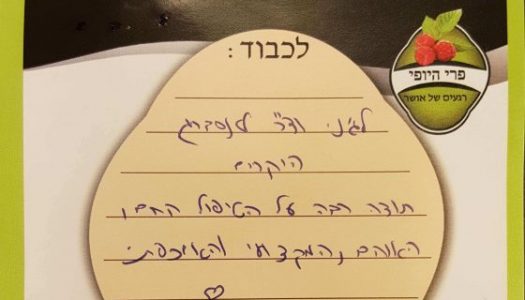 לכבוד:
פרי היופי
רגעים של אושר
לג'ני וד"ר לנסברג
היקרים
תודה רבה על הטיפול החם,
האוהב, המקצועי והאכפתי.